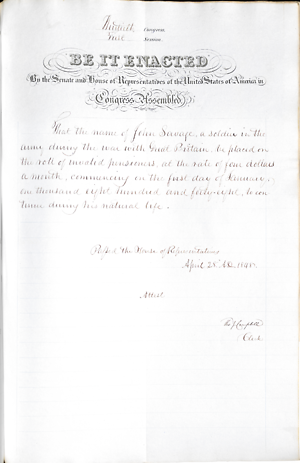 Thirtieth Congress
First Session
BE IT ENACTED
By the Senate and House of Representatives of the United States of America in
Congress Assembled
That the name of John Savage, a soldier in the
army during the war with Great Britain be placed on
the roll of invalid pensioners, at the rate of four dollars
a month, commencing on the first day of January,
one thousand eight hundred and forty-eight, to con
tinue during his natural life.
Passed the House of Representatives
April 28, AD. 1848.
Attest
Clerk